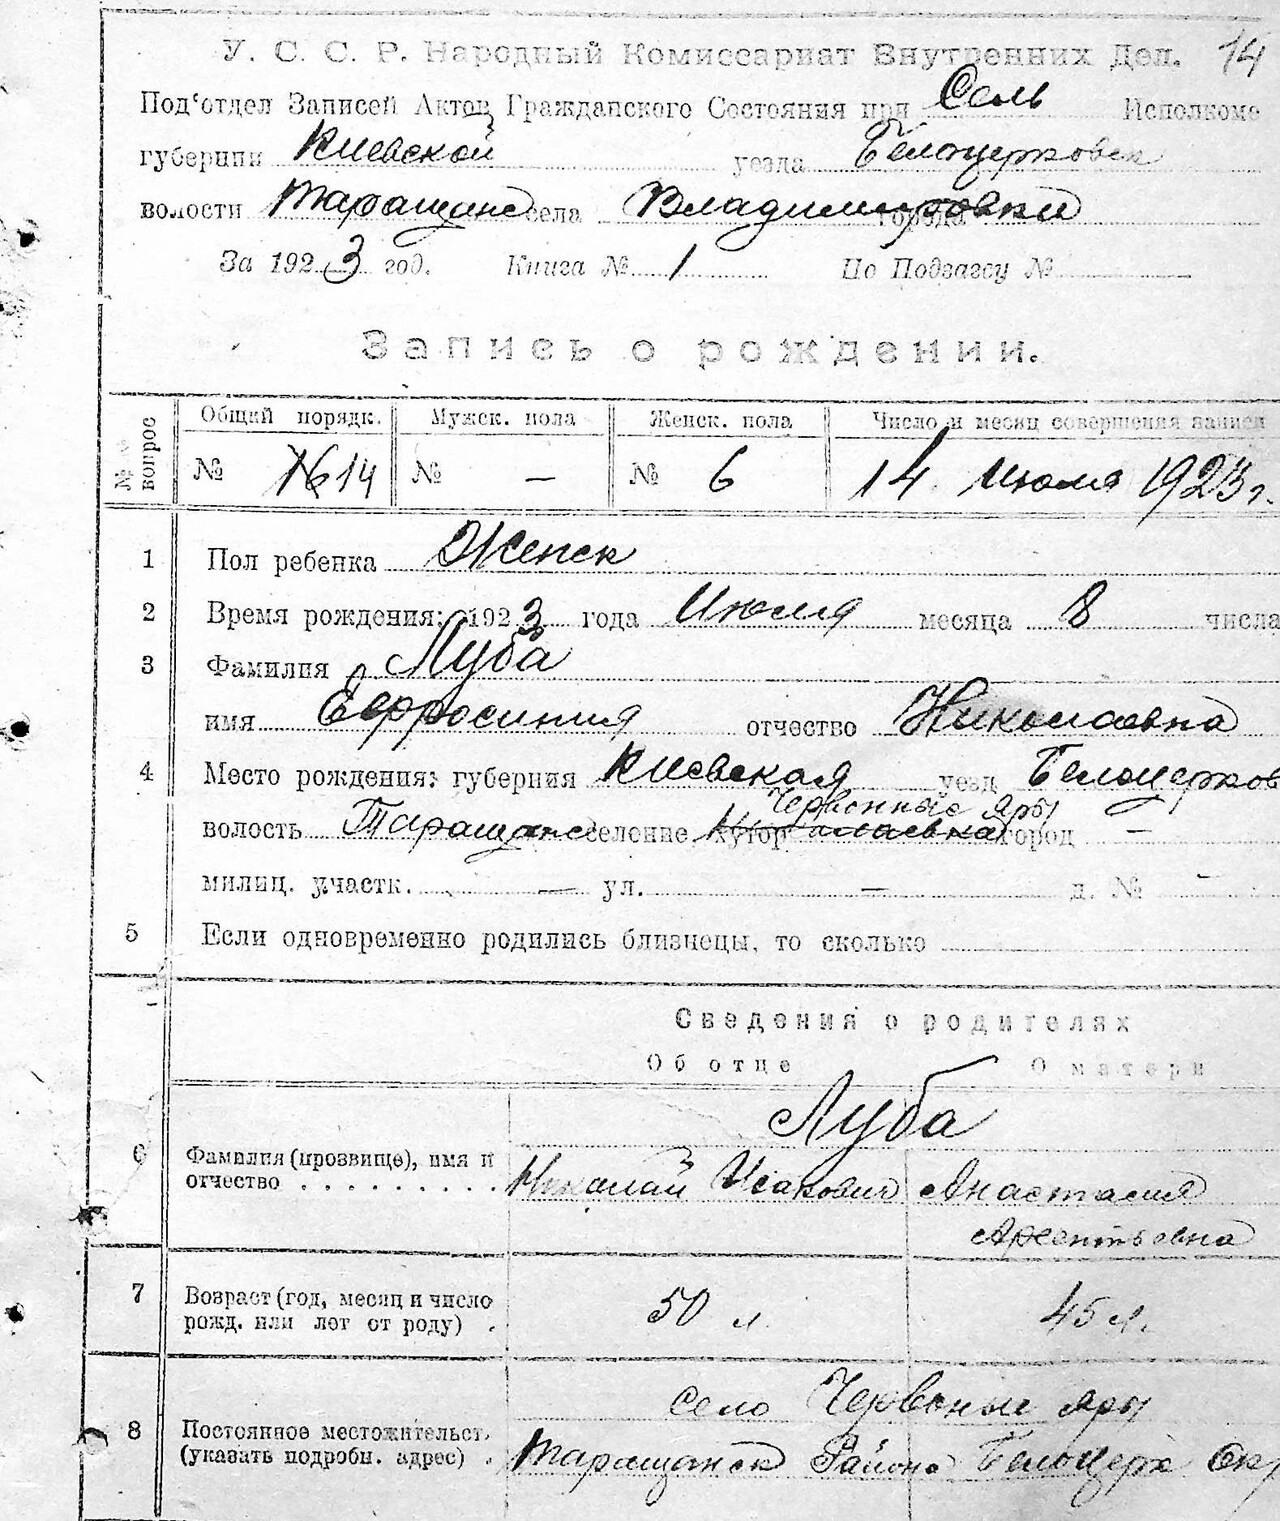 14
У. С. С. Р. Народный Комиссариат Внутренних Дел.
Под'отдел Записей Актов Гражданского Состояния при Сель Исполкоме
губернии Киевской уезда Белоцерковск
волости Таращанс села Владимировки города
За 1923 год. Книга № 1 По Подзагсу №
Запись о рождении.
№№ вопрос
Общий порядк. Мужск. пола Женск. пола Число и месяц совершения записи
№ 16 14 № — № 6 14 Июля 1923 г.
1 Пол ребенка Женск
2 Время рождения: 1923 года Июля месяца 8 числа
3 Фамилия Луба
имя Евфросиния отчество Николаевна
4 Место рождения: губерния Киевская уезд Белоцерков
Червонные Яры
волость Таращанс селение, хутор Николаевка город —
милиц. участк. — ул. — д. № -
5 Если одновременно родились близнецы, то сколько
Сведения о родителях
Об отце О матери
Луба
6 Фамилия (прозвище), имя и отчество Николай Исакович Анастасия
Арсентьевна
7 Возраст (год, месяц и число рожд. или лет от роду) 50 л. 45 л.
село Червоные Яры
8 Постоянное местожительст. (указать подробн. адрес) Таращанск Района Белоцерк Окр